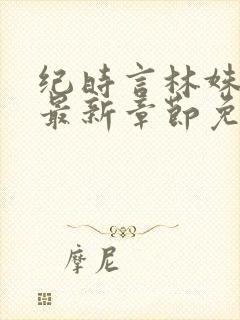 纪时言林妹
最新章节免
摩尼